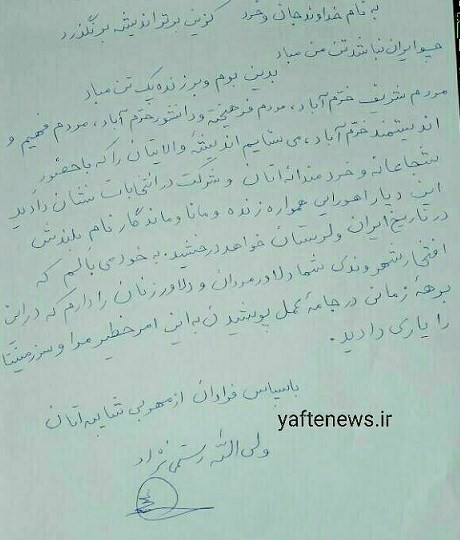 به نام خداوند جان و خرد    کزین برتر اندیشه برنگذرد
چو ایران نباشد تن من مباد
بدین بوم و بر زنده یک تن مباد
مردم شریف خرّم آباد، مردم فرهیخته و دانشور خرّم آباد، مردم فهیم و
اندیشمند خرّم آباد، می ستایم اندیشهٔ والایتان را که با حضور
شجاعانه و خردمندانه اتان و شرکت در انتخابات نشان دادید
این دیار اهورایی همواره زنده و مانا و ماندگار نام بلندش
در تاریخ ایران و لرستان خواهد درخشید. به خود می بالم که
افتخار شهروندی شما دلاورمردان و دلاور زنان را دارم که در این
برههٔ زمانی در جامهٔ عمل پوشیدن به این امر خطیر مرا و سرزمینتان
را یاری دادید.
با سپاس فراوان از مهر بی شائبه اتان
yaftenews.ir
ولی الله رستمی نژاد